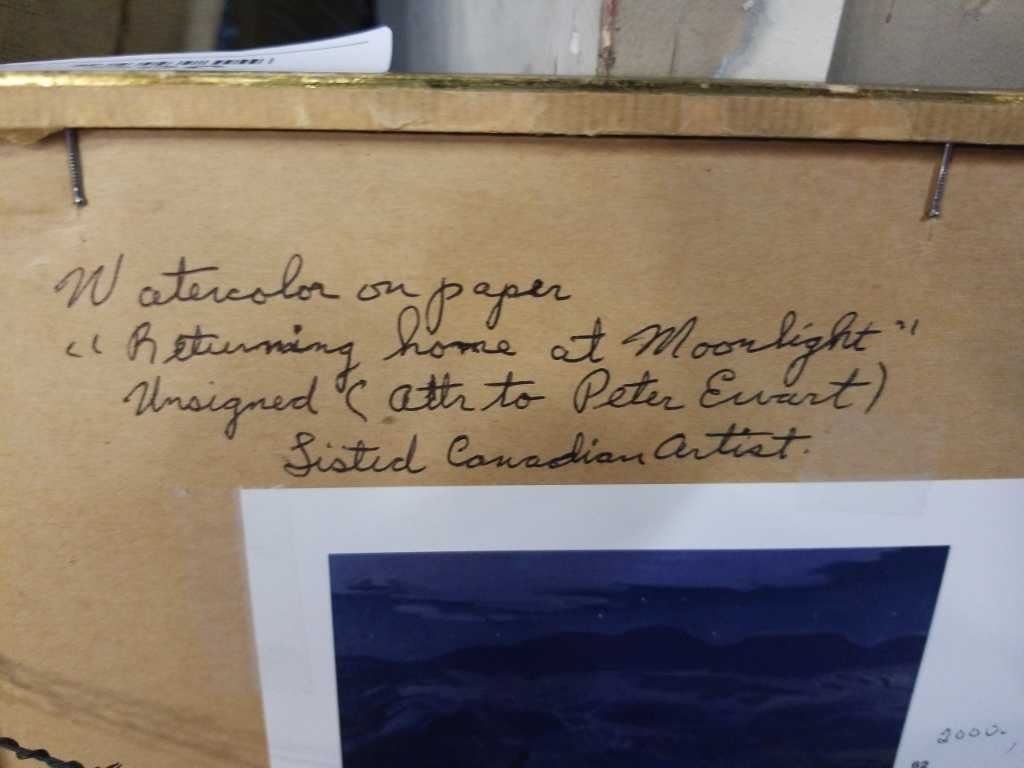 Watercolor on paper
"Returning home at Moonlight"
Unsigned (attr to Peter Ewart)
Listed Canadian Artist.
2000.
82